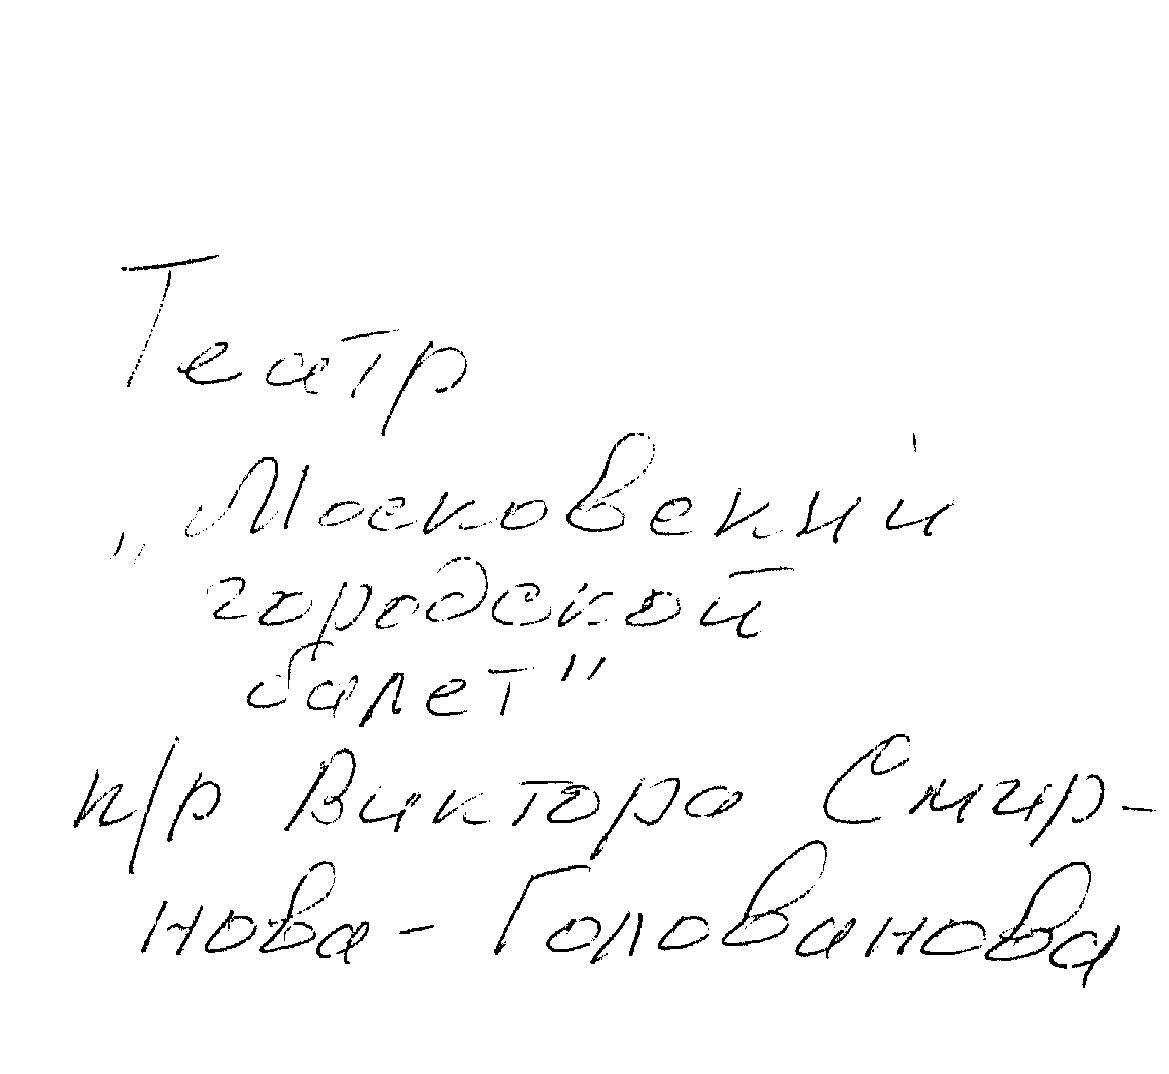 Театр
„Московский
городской
балет"
п/р Виктора Смир-
нова-Голованова